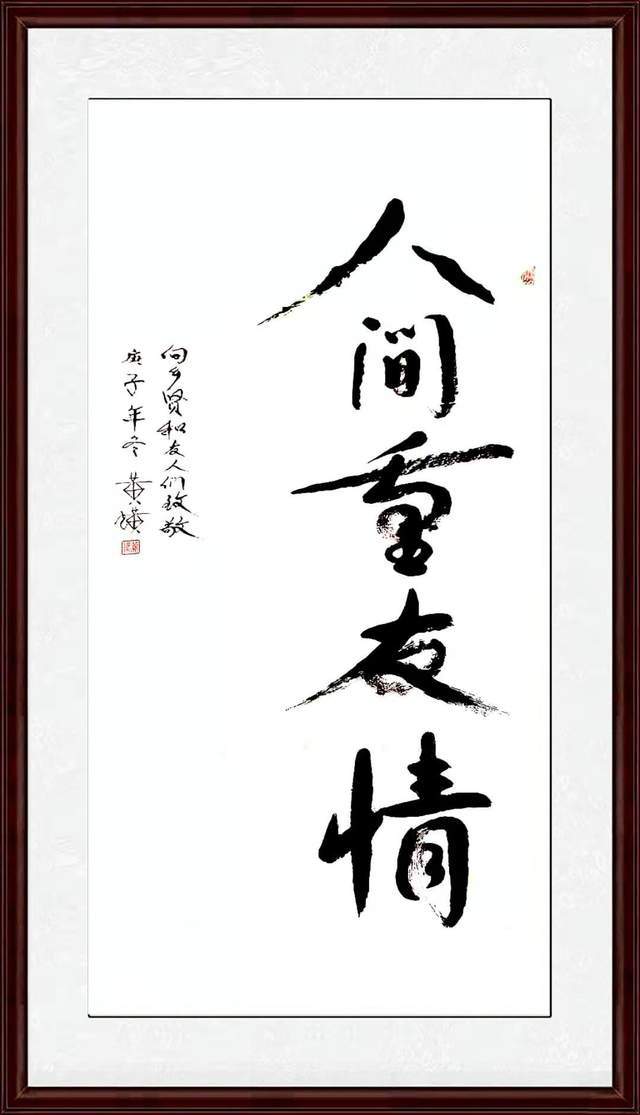 人间重友情
向乡贤和友人们致敬
庚子年冬 黄